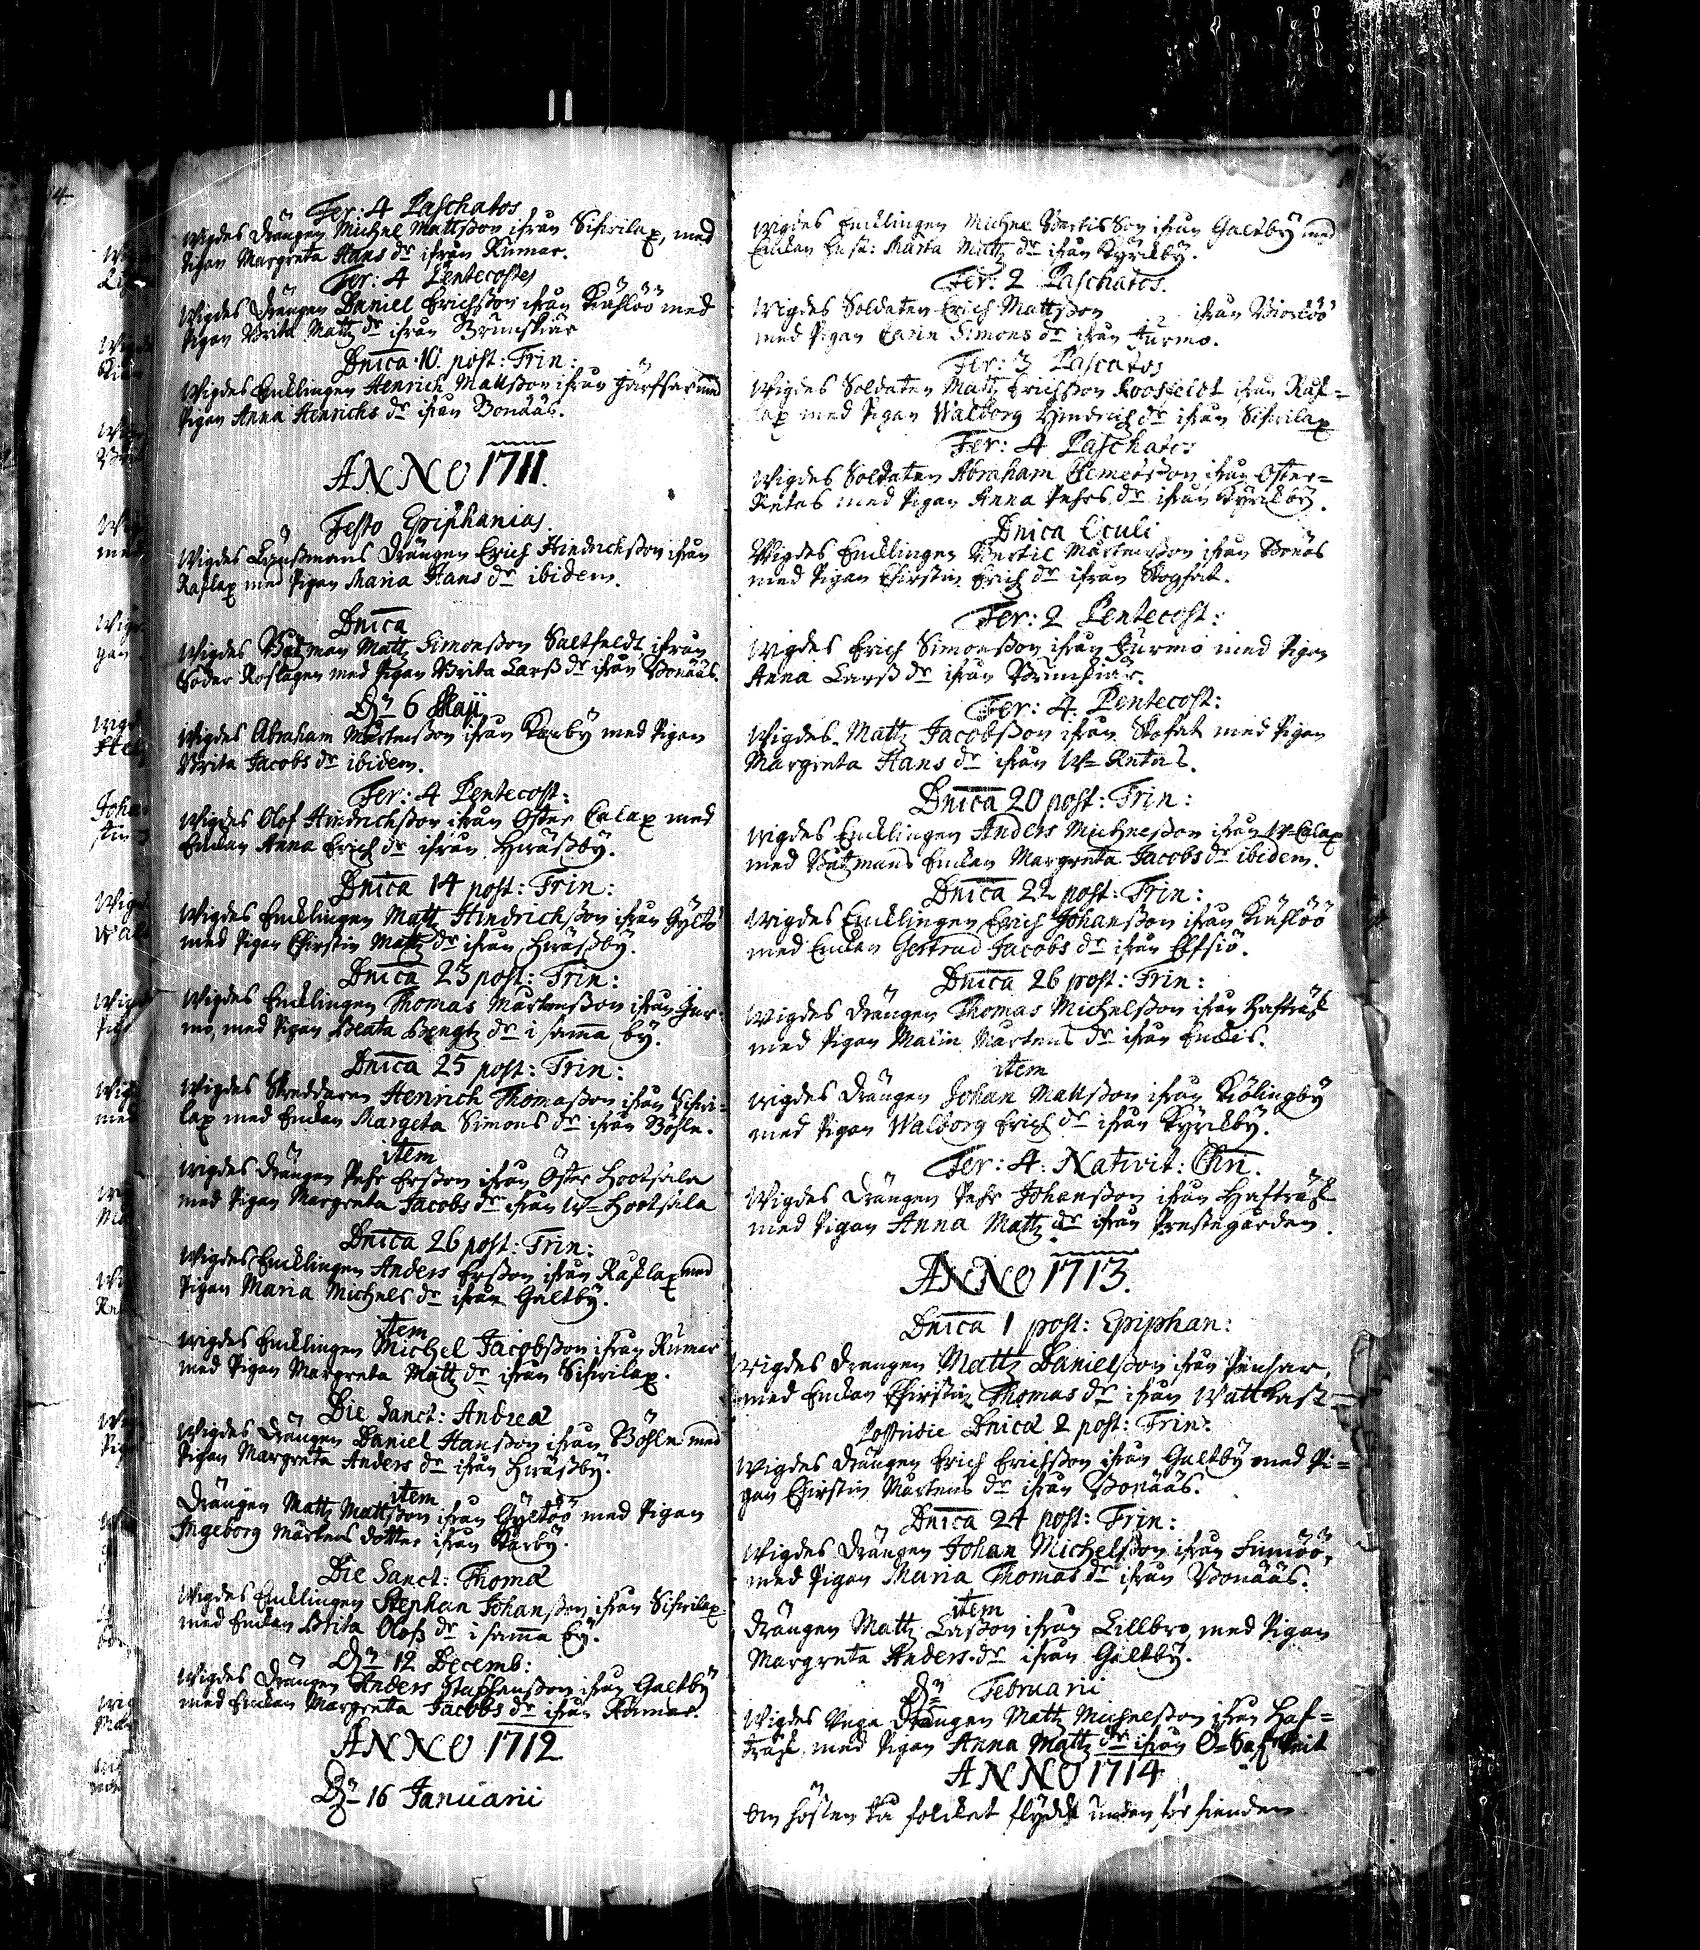 Fer: 4 Paschatos
Wigdes Drängen Michel Mattßon ifrån Sifwilax, med
Pigan Margreta Hans dr ifrån Rumar.
Fer: 4 Pentecostes
Wigdes Drängen Daniel Erichßon ifrån Kuhlöö med
Pigan Brita Matz dr ifrån Brunskiär
Dnica 10 post: Trin:
Wigdes Encklingen Henrich Mattßon ifrån med
Pigan Anna Henrichs dr ifrån Bonääs.
ANNO 1711.
Festo Epiphanias.
Wigdes Länßmans Drängen Erich Hindrichßon ifrån
Raflax med Pigan Maria Hans dr ibidem.
Dnica
Wigdes Båtzman Matz Simonßon Saltfeldt ifrån
Söder Roslagen med Pigan Brita Larß dr ifrån Bonääs.
Dn 6 Maji
Wigdes Abraham Mårtenßon ifrån Karby med Pigan
Brita Jacobs dr ibidem.
Fer: 4 Pentecost:
Wigdes Olof Hindrichßon ifrån Öster Calax med
Enckan Anna Erich dr ifrån Hwäßby.
Dnica 14 post: Trin:
Wigdes Encklingen Matz Hindrichßon ifrån Gyltö
med Pigan Chirstin Matz dr ifrån Hwäßby.
Dnica 23 post: Trin:
Wigdes Encklingen Thomas Mårtenßon ifrån Jur-
mo, med Pigan Beata Bengtz dr i samma by.
Dnica 25 post: Trin:
Wigdes Skreddaren Henrich Thomaßon ifrån Sifwi=
lax med Enckan Margeta Simons dr ifrån Böhle.
item
Wigdes Drängen Pehr Erßon ifrån Öster Hootsala
med Pigan Margreta Jacobs dr ifrån W= Hootsala
Dnica 26 post: Trin:
Wigdes Encklingen Anders Erßon ifrån Raflax med
Pigan Maria Michels dr ifrån Galtby.
item
Wigdes Encklingen Michel Jacobßon ifrån Rumar
med Pigan Margreta Matz dr ifrån Sifwilax.
Die Sanct: Andreæ
Wigdes Drängen Daniel Hanßon ifrån Böhle med
Pigan Margreta Anders dr ifrån Hwäßby.
item
Drängen Matz Mattßon ifrån Gyltöö med Pigan
Ingeborg Mårtens dotter ifrån Karby.
Die Sanct: Thomæ
Wigdes Encklingen Stephan Johanßon ifrån Sifwilax
med Enckan Brita Olofs dr i samma by.
Dn 12 Decemb:
Wigdes Drängen Anders Staffenßon ifrån Galtby
med Enckan Margreta Jacobs dr ifrån Rumar.
ANNO 1712
Dn 16 Januarii
Wigdes Encklingen Michel Bertilsson ifrån Galtby med
Enckan Marta Matz dr ifrån Kyrckby.
Fer: 2 Paschatos.
Wigdes Soldaten Erich Mattßon ifrån
med Pigan Carin Simons dr ifrån Jurmo.
Fer: 3 Pascatos
Wigdes Soldaten Matz Erichßon Roosfeldt ifrån Raf=
lax med Pigan Walborg Hindrich dr ifrån Sifwilax
Fer: 4 Paschatos
Wigdes Soldaten Abraham Clemetßon ifrån Öster=
Retais med Pigan Anna Pehrs dr ifrån Kyrckby.
Dnica Oculi
Wigdes Encklingen Bertil Mårtenßon ifrån Bonäs
med Pigan Chirstin Erich dr ifrån
Fer: 2 Pentecost:
Wigdes Erich Simonßon ifrån Jurmo med Pigan
Anna Larß dr ifrån Brunskiär.
Fer: 4. Pentecost:
Wigdes Matz Jacobßon ifrån med Pigan
Margreta Hans dr ifrån W= Retais.
Dnica 20 post: Trin:
Wigdes Encklingen Anders Michelßon ifrån W= Calax
med Båtzmans Enckan Margreta Jacobs dr ibidem.
Dnica 22 post: Trin:
Wigdes Encklingen Erich Johanßon ifrån Kuhlöö
med Enckan Gertrud Jacobs dr ifrån Elfsiö.
Dnica 26 post: Trin:
Wigdes Drängen Thomas Michelßon ifrån Hafträsk
med Pigan Malin Mårtens dr ifrån Enckis.
item
Wigdes Drängen Johan Mattßon ifrån Kiölingby
med Pigan Walborg Erich dr ifrån Kyrckby.
Fer: 4: Nativit: Chri.
Wigdes Drängen Pehr Johanßon ifrån Hafträsk
med Pigan Anna Matz dr ifrån Prestegården.
ANNO 1713.
Dnica 1 post: Epiphan:
Wigdes Drängen Matz Danielßon ifrån Pensar,
med Enckan Chirstin Thomas dr ifrån Wattkast.
Postridie Dnicæ 2 post: Trin:
Wigdes Drängen Erich Erichßon ifrån Galtby med Pi=
gan Chirstin Mårtens dr ifrån Bonääs.
Dnica 24 post: Trin:
Wigdes Drängen Johan Michelßon ifrån
med Pigan Maria Thomas dr ifrån Bonääs.
item
Drängen Matz Laßon ifrån Lillbro med Pigan
Margreta Anders dr ifrån Galtby.
Dn Februarii
Wigdes Unga Drängen Matz Michelßon ifrån Haf=
träsk med Pigan Anna Matz dr ifrån
ANNO 1714
Om hösten då folcket flydde undan för fienden